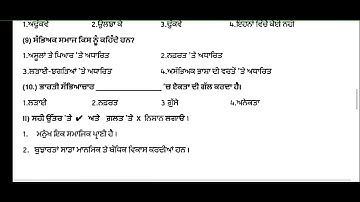 1.ਅਢੁੱਕਵੇਂ 2.ਉਲਝਾ ਕੇ 3.ਢੁੱਕਵੇਂ 4.ਇਹਨਾਂ ਵਿੱਚੋਂ ਕੋਈ ਨਹੀਂ
(9) ਸੱਭਿਅਕ ਸਮਾਜ ਕਿਸ ਨੂੰ ਕਹਿੰਦੇ ਹਨ?
1.ਅਸੂਲਾਂ ਤੇ ਪਿਆਰ 'ਤੇ ਅਧਾਰਿਤ 2.ਨਫ਼ਰਤ 'ਤੇ ਅਧਾਰਿਤ
3.ਲੜਾਈ-ਝਗੜਿਆਂ 'ਤੇ ਅਧਾਰਿਤ 4.ਅਸੱਭਿਅਕ ਭਾਸ਼ਾ ਦੀ ਵਰਤੋਂ 'ਤੇ ਅਧਾਰਿਤ
(10.) ਭਾਰਤੀ ਸੱਭਿਆਚਾਰ ____________ 'ਚ ਏਕਤਾ ਦੀ ਗੱਲ ਕਰਦਾ ਹੈ।
1.ਲੜਾਈ 2.ਨਫ਼ਰਤ 3 ਗੁੱਸੇ 4.ਅਨੇਕਤਾ
II) ਸਹੀ ਉੱਤਰ 'ਤੇ ✔ ਅਤੇ ਗ਼ਲਤ 'ਤੇ X ਨਿਸ਼ਾਨ ਲਗਾਓ ।
1. ਮਨੁੱਖ ਇਕ ਸਮਾਜਿਕ ਪ੍ਰਾਣੀ ਹੈ ।
2. ਬੁਝਾਰਤਾਂ ਸਾਡਾ ਮਾਨਸਿਕ ਤੇ ਬੌਧਿਕ ਵਿਕਾਸ ਕਰਦੀਆਂ ਹਨ ।